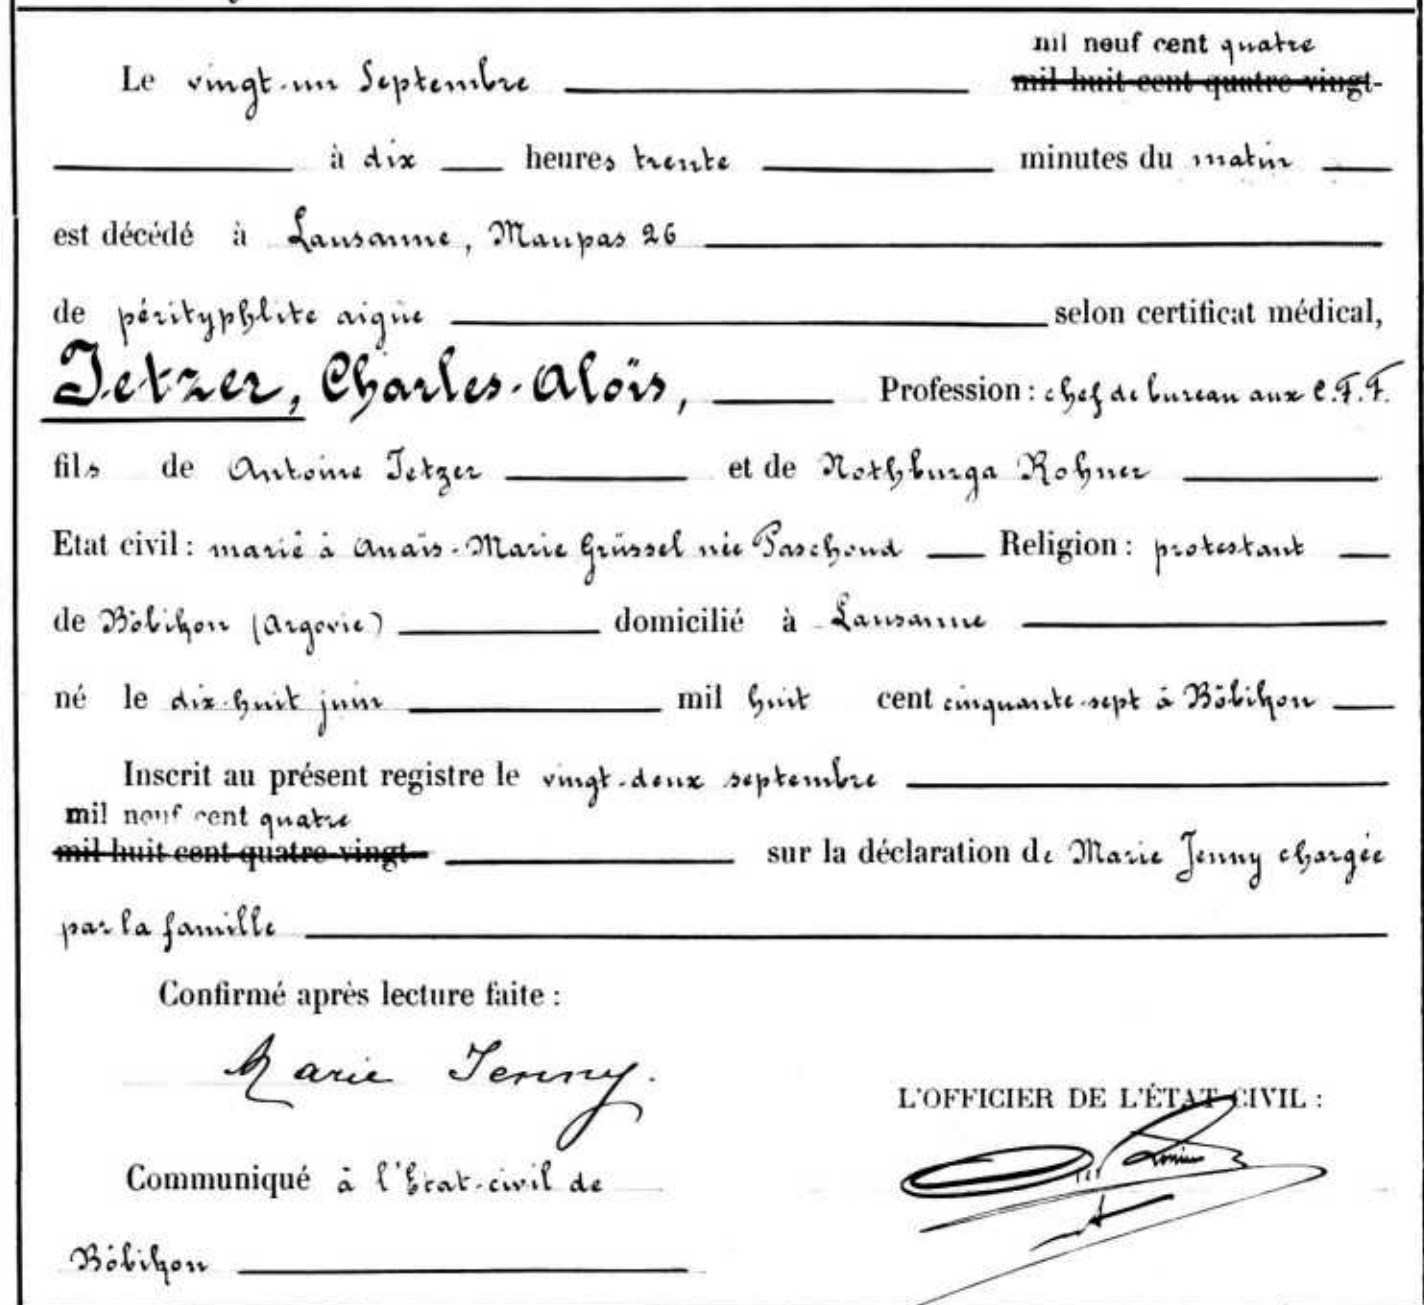 mil neuf cent quatre
Le vingt-un Septembre mil huit cent quatre-vingt-
à dix heures trente minutes du matin
est décédé à Lausanne, Maupas 26
de pérityphlite aigüe selon certificat médical,
Jetzer, Charles-Aloïs, Profession : chef de bureau aux C.F.F.
fils de Antoine Jetzer et de Nothburga Rohner
Etat civil : marié à Anaïs-Marie Grüssel née Paschoud Religion : protestant
de Böbikon (Argovie) domicilié à Lausanne
né le dix-huit juin mil huit cent cinquante-sept à Böbikon
Inscrit au présent registre le vingt-deux septembre
mil neuf cent quatre
mil huit cent quatre-vingt- sur la déclaration de Marie Jenny chargée
par la famille
Confirmé après lecture faite :
Marie Jenny.
L'OFFICIER DE L'ÉTAT CIVIL :
Communiqué à l'Etat-civil de
Böbikon